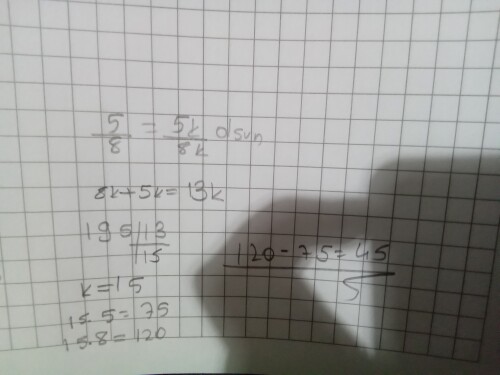 5/8 = 5k/8k olsun
8k+5k=13k
195 | 13
15
k=15
15.5=75
15.8=120
120-75=45